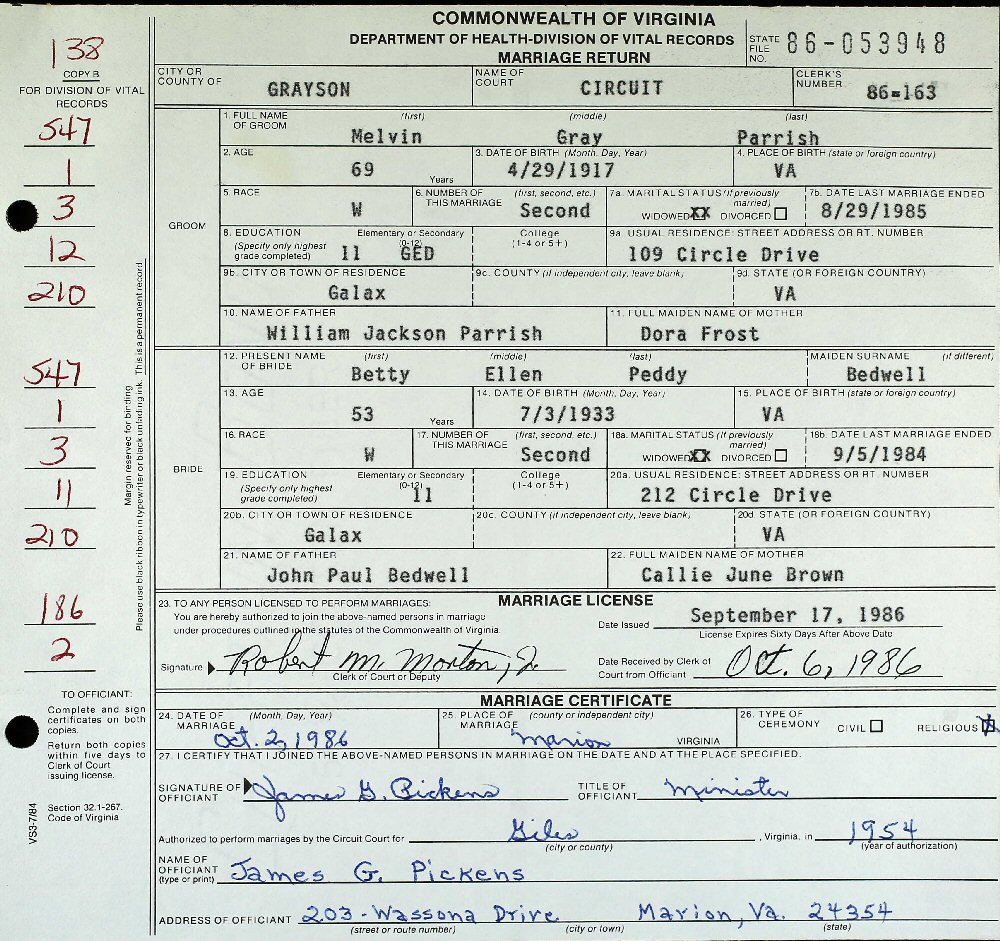 COMMONWEALTH OF VIRGINIA
DEPARTMENT OF HEALTH-DIVISION OF VITAL RECORDS
MARRIAGE RETURN
STATE FILE NO. 86-053948
138
COPY B
FOR DIVISION OF VITAL RECORDS
547
1
3
12
210
547
1
3
11
210
186
2
Margin reserved for binding
Please use black ribbon in typewriter or black unfading ink. This is a permanent record.
TO OFFICIANT:
Complete and sign certificates on both copies.
Return both copies within five days to Clerk of Court issuing license.
Section 32.1-267. Code of Virginia
VS3-7/84
CITY OR COUNTY OF GRAYSON
NAME OF COURT CIRCUIT
CLERK'S NUMBER 86-163
GROOM
1. FULL NAME OF GROOM (first) Melvin (middle) Gray (last) Parrish
2. AGE 69 Years
3. DATE OF BIRTH (Month, Day, Year) 4/29/1917
4. PLACE OF BIRTH (state or foreign country) VA
5. RACE W
6. NUMBER OF THIS MARRIAGE (first, second, etc.) Second
7a. MARITAL STATUS (If previously married) WIDOWED XX DIVORCED
7b. DATE LAST MARRIAGE ENDED 8/29/1985
8. EDUCATION (Specify only highest grade completed) Elementary or Secondary (0-12) 11 GED College (1-4 or 5+)
9a. USUAL RESIDENCE: STREET ADDRESS OR RT. NUMBER 109 Circle Drive
9b. CITY OR TOWN OF RESIDENCE Galax
9c. COUNTY (if independent city, leave blank)
9d. STATE (OR FOREIGN COUNTRY) VA
10. NAME OF FATHER William Jackson Parrish
11. FULL MAIDEN NAME OF MOTHER Dora Frost
BRIDE
12. PRESENT NAME OF BRIDE (first) Betty (middle) Ellen (last) Peddy MAIDEN SURNAME (if different) Bedwell
13. AGE 53 Years
14. DATE OF BIRTH (Month, Day, Year) 7/3/1933
15. PLACE OF BIRTH (state or foreign country) VA
16. RACE W
17. NUMBER OF THIS MARRIAGE (first, second, etc.) Second
18a. MARITAL STATUS (If previously married) WIDOWED XX DIVORCED
18b. DATE LAST MARRIAGE ENDED 9/5/1984
19. EDUCATION (Specify only highest grade completed) Elementary or Secondary (0-12) 11 College (1-4 or 5+)
20a. USUAL RESIDENCE: STREET ADDRESS OR RT. NUMBER 212 Circle Drive
20b. CITY OR TOWN OF RESIDENCE Galax
20c. COUNTY (if independent city, leave blank)
20d. STATE (OR FOREIGN COUNTRY) VA
21. NAME OF FATHER John Paul Bedwell
22. FULL MAIDEN NAME OF MOTHER Callie June Brown
MARRIAGE LICENSE
23. TO ANY PERSON LICENSED TO PERFORM MARRIAGES:
You are hereby authorized to join the above-named persons in marriage
under procedures outlined in the statutes of the Commonwealth of Virginia.
Date Issued September 17, 1986
License Expires Sixty Days After Above Date
Signature Robert M. Morton, Jr.
Clerk of Court or Deputy
Date Received by Clerk of Court from Officiant Oct. 6, 1986
MARRIAGE CERTIFICATE
24. DATE OF MARRIAGE (Month, Day, Year) Oct. 2, 1986
25. PLACE OF MARRIAGE (county or independent city) Marion VIRGINIA
26. TYPE OF CEREMONY CIVIL RELIGIOUS X
27. I CERTIFY THAT I JOINED THE ABOVE-NAMED PERSONS IN MARRIAGE ON THE DATE AND AT THE PLACE SPECIFIED.
SIGNATURE OF OFFICIANT James G. Pickens
TITLE OF OFFICIANT Minister
Authorized to perform marriages by the Circuit Court for Giles, Virginia, in 1954
(city or county) (year of authorization)
NAME OF OFFICIANT (type or print) James G. Pickens
ADDRESS OF OFFICIANT 203 - Wassona Drive Marion, Va. 24354
(street or route number) (city or town) (state)